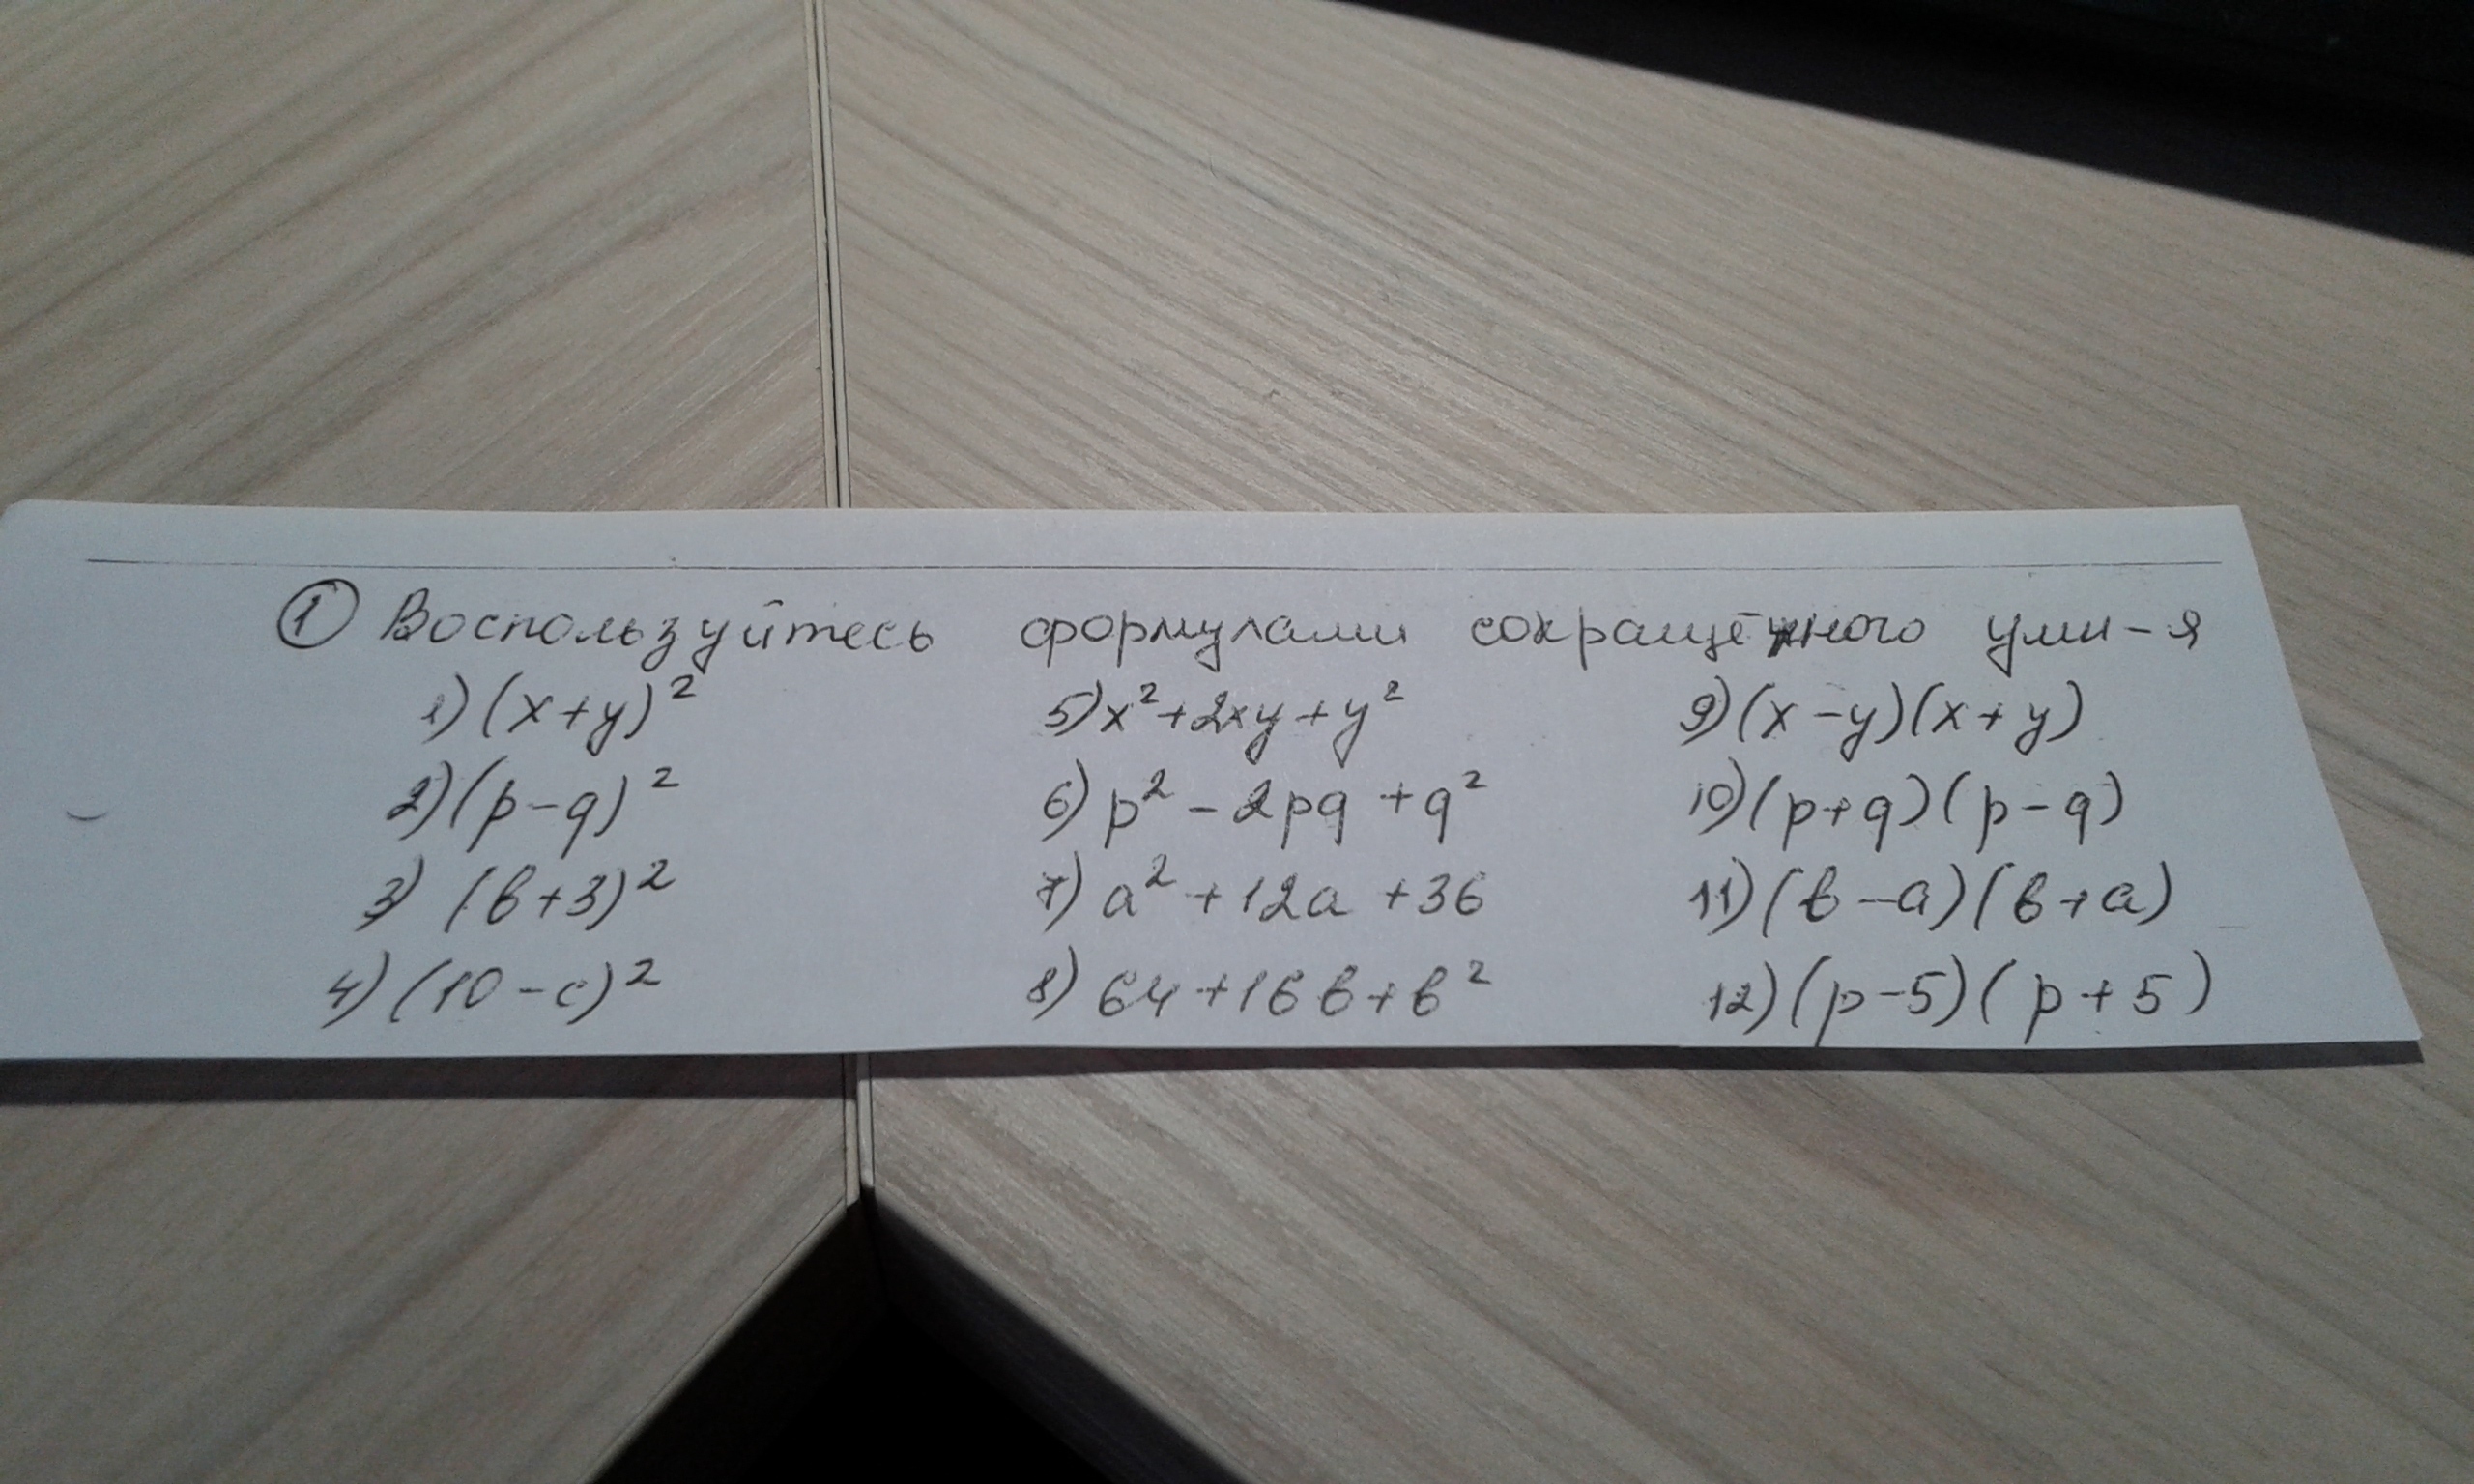 ① Воспользуйтесь формулами сокращённого умн-я
1) (x+y)² 5) x²+2xy+y² 9) (x-y)(x+y)
2) (p-q)² 6) p²-2pq+q² 10) (p+q)(p-q)
3) (в+3)² 7) a²+12a+36 11) (в-a)(в+a)
4) (10-c)² 8) 64+16в+в² 12) (p-5)(p+5)